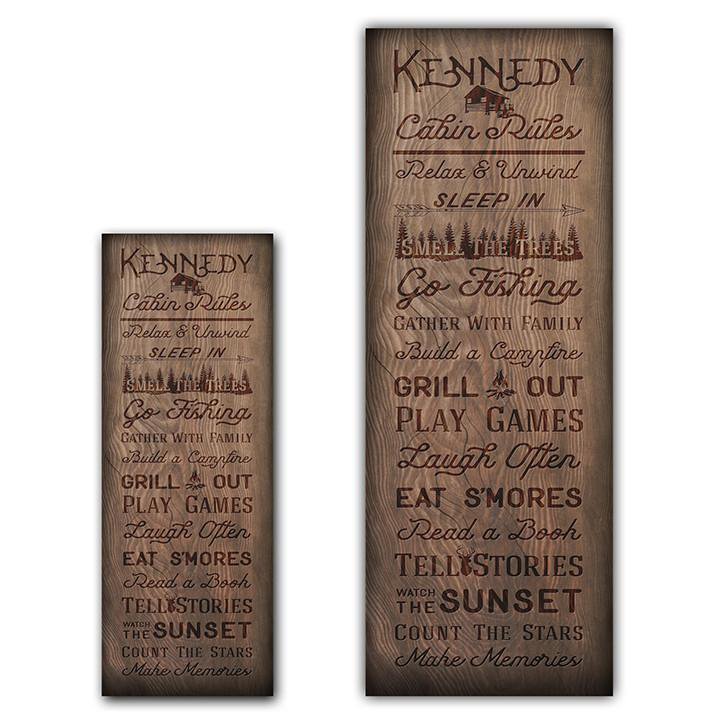 KENNEDY
Cabin Rules
Relax & Unwind
SLEEP IN
SMELL THE TREES
Go Fishing
GATHER WITH FAMILY
Build a Campfire
GRILL OUT
PLAY GAMES
Laugh Often
EAT S'MORES
Read a Book
TELL STORIES
WATCH THE SUNSET
COUNT THE STARS
Make Memories
KENNEDY
Cabin Rules
Relax & Unwind
SLEEP IN
SMELL THE TREES
Go Fishing
GATHER WITH FAMILY
Build a Campfire
GRILL OUT
PLAY GAMES
Laugh Often
EAT S'MORES
Read a Book
TELL STORIES
WATCH THE SUNSET
COUNT THE STARS
Make Memories